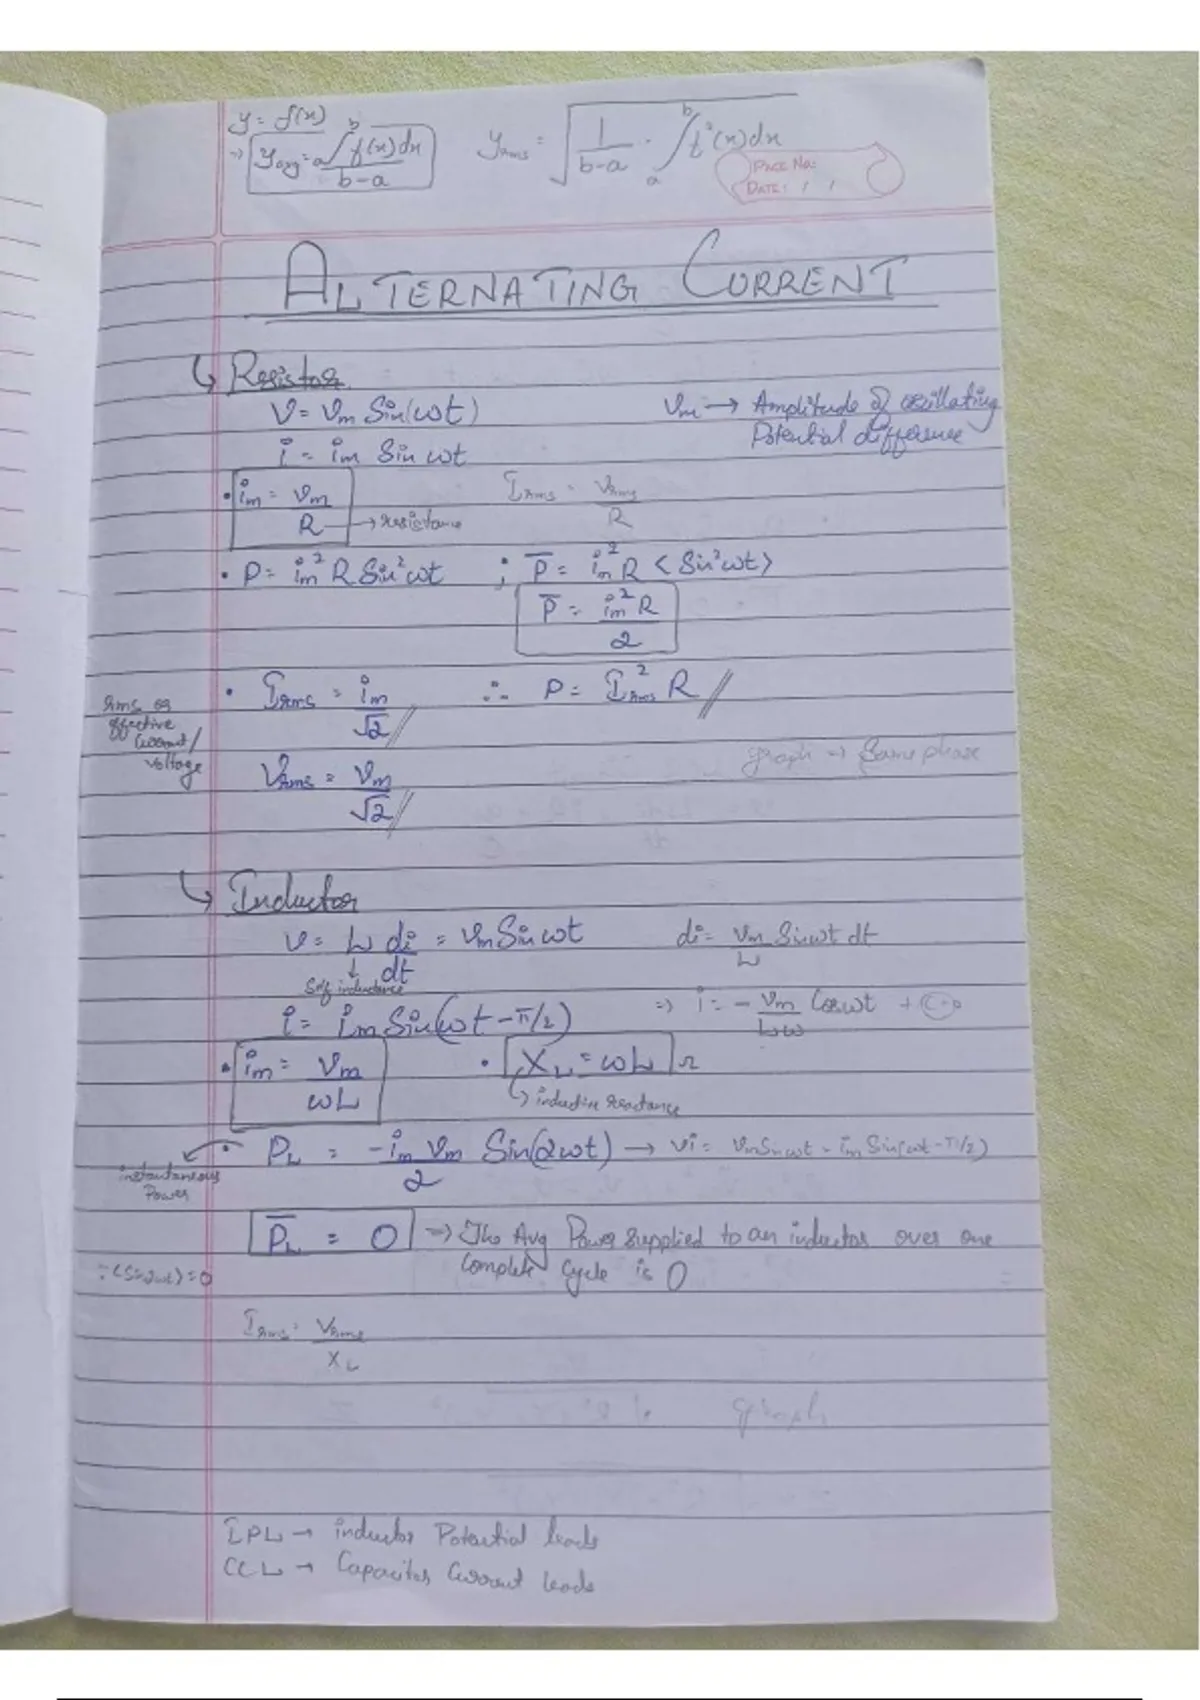 y = f(x)
⇒ y_avg = ₐ∫ᵇ f(x)dx / b-a
y_rms = √(1/(b-a) · ₐ∫ᵇ f²(x)dx)
PAGE No:
DATE: / /
ALTERNATING CURRENT
↳ Resistor
V = Vm Sin(ωt)
Vm → Amplitude of oscillating
Potential difference
i = im Sin ωt
• im = Vm/R → resistance
Irms = Vrms/R
• P = im² R Sin²ωt ; P̅ = im² R <Sin²ωt>
P̅ = im² R / 2
• Irms = im/√2 // ∴ P = Irms² R //
rms or
effective
Current/
voltage
graph → Same phase
Vrms = Vm/√2 //
↳ Inductor
V = L di/dt = Vm Sin ωt
di = Vm/L Sinωt dt
Self inductance
i = im Sin(ωt - π/2)
⇒ i = - Vm/Lω Cosωt + C→0
• im = Vm/ωL
• XL = ωL Ω
↳ inductive reactance
• PL = -im Vm/2 Sin(2ωt) → Vi = VmSinωt · im Sin(ωt - π/2)
instantaneous
Power
P̅L = 0 ⇒ The Avg Power supplied to an inductor over one
Complete Cycle is 0
∵ <Sin2ωt> = 0
Irms = Vrms/XL
graph
IPL → inductor Potential leads
CCL → Capacitor Current leads